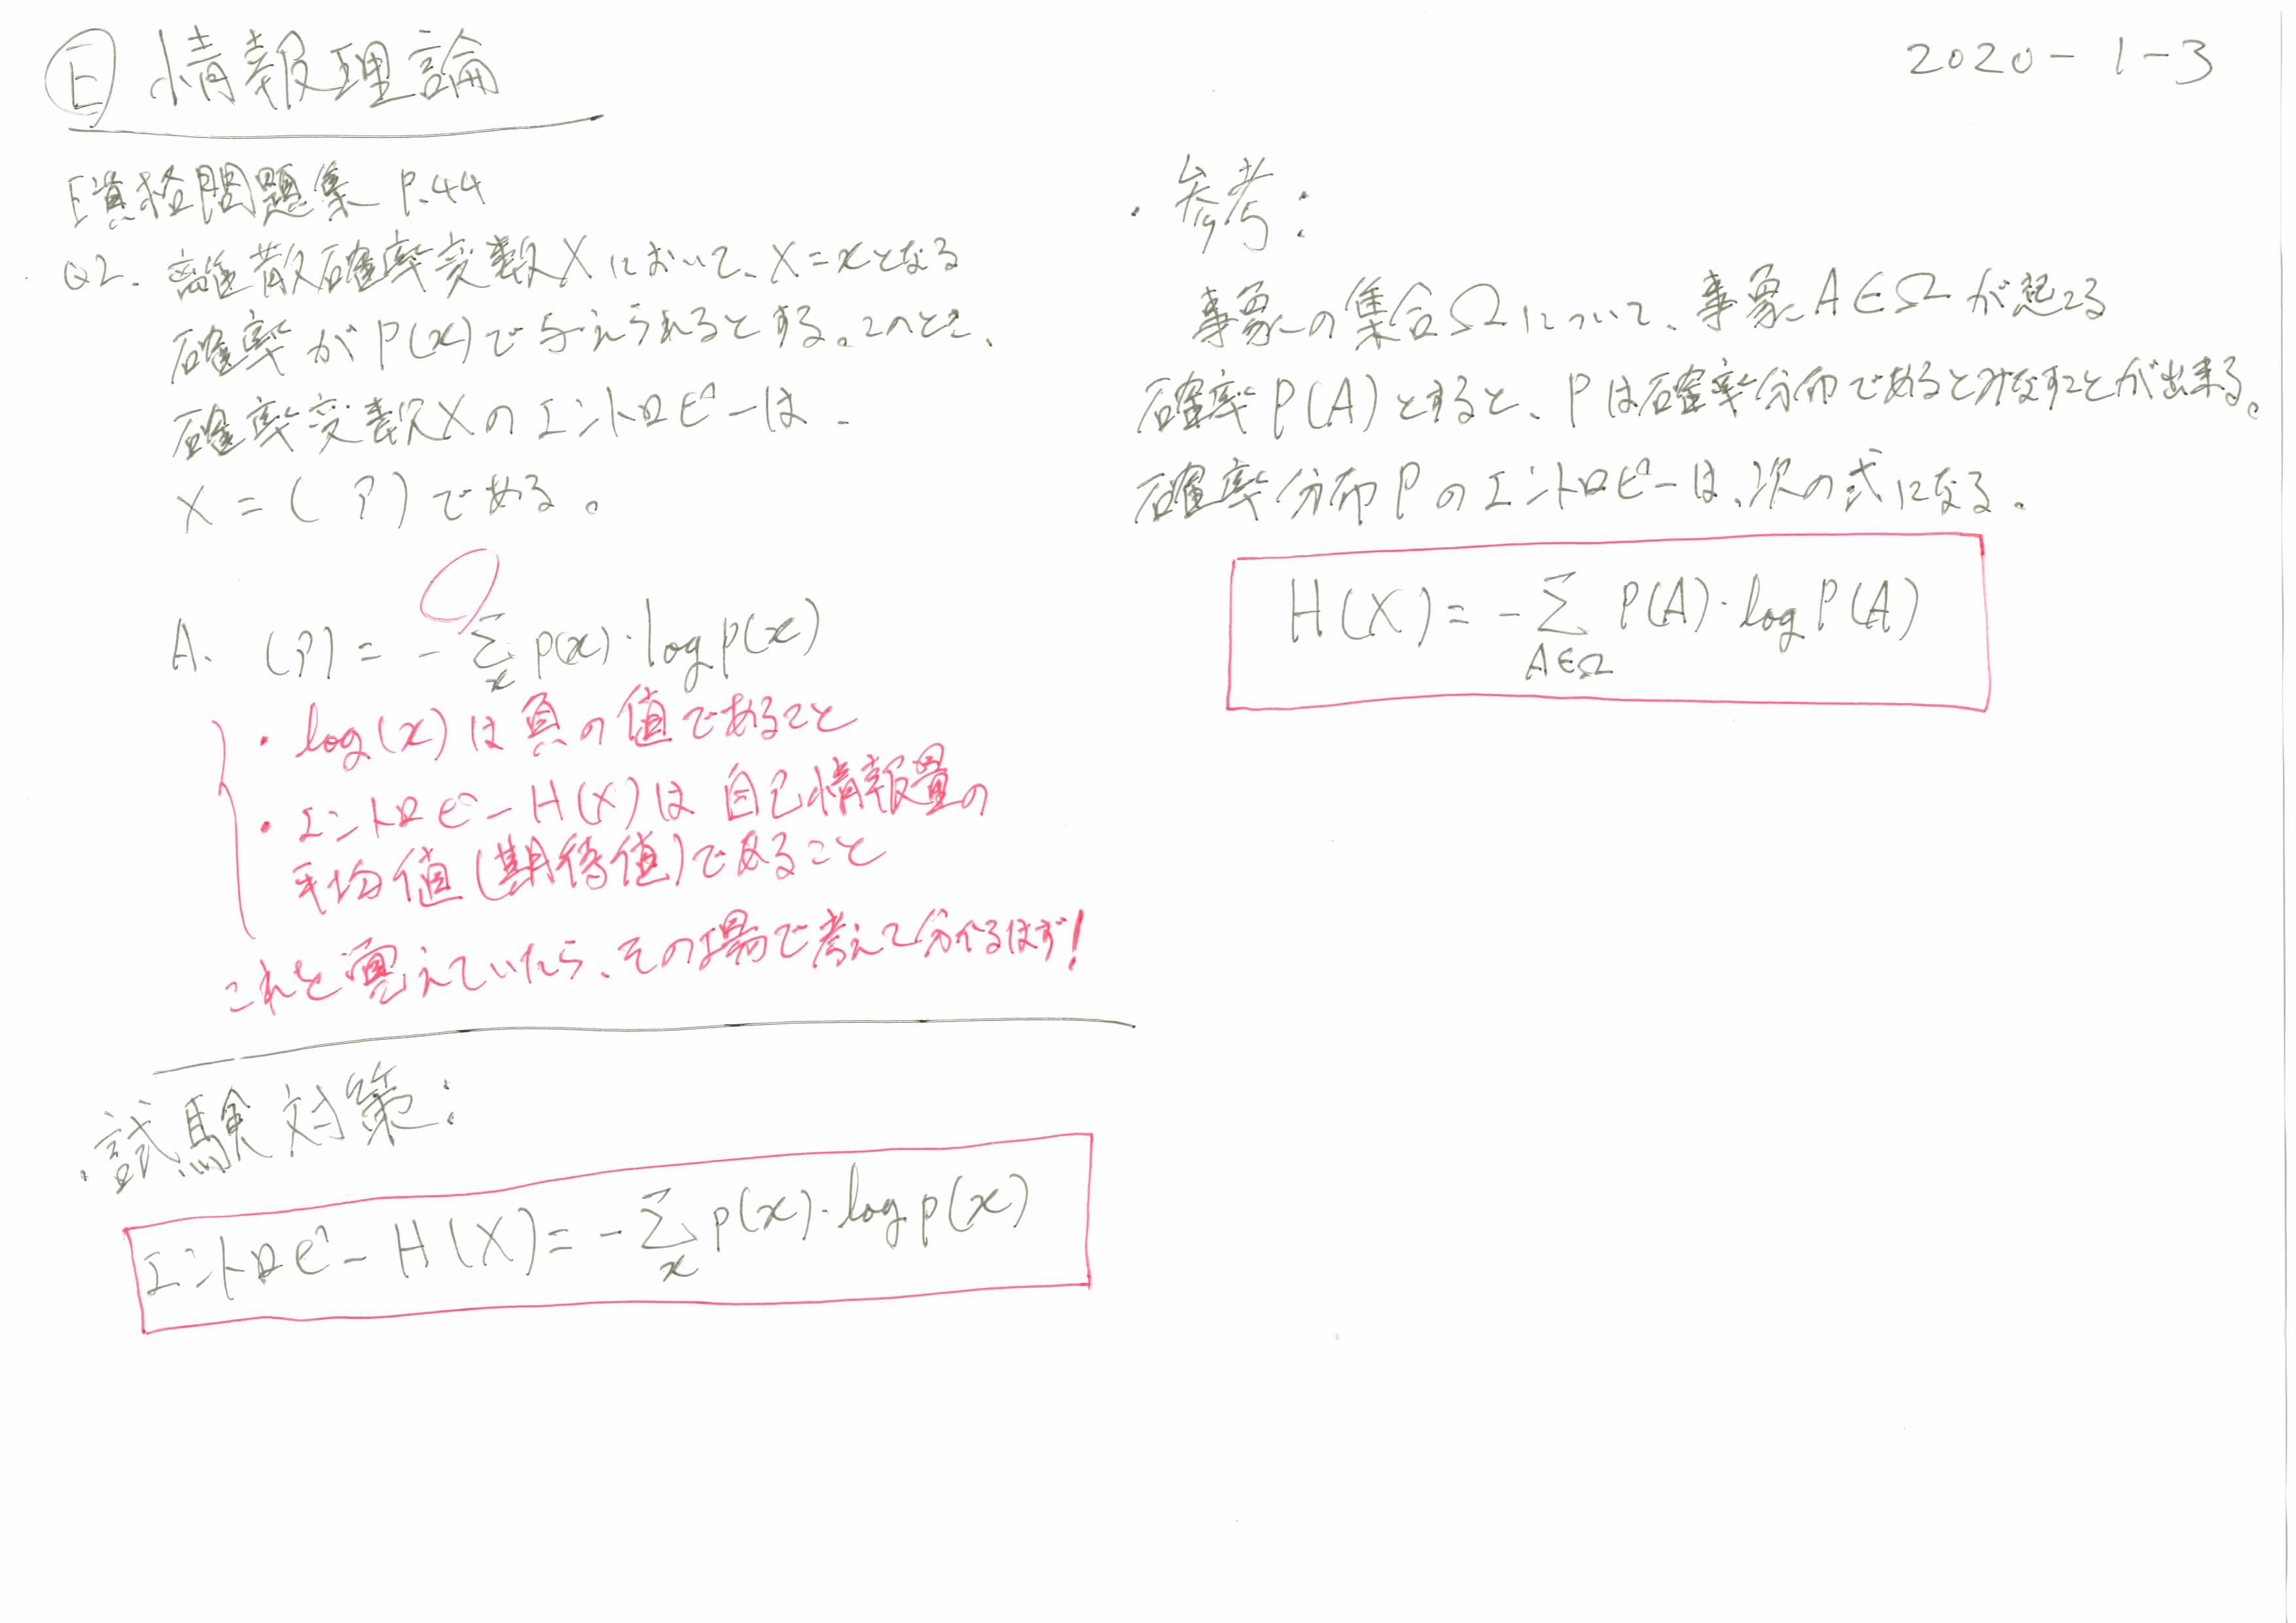 Ⓔ 情報理論
2020-1-3
E資格問題集 P.44
Q2. 離散確率変数Xにおいて、X=xとなる
確率がP(x)で与えられるとする。このとき、
確率変数Xのエントロピーは、
X=(ア)である。
A. (ア) = -Σ_x p(x)・log p(x)
・log(x)は負の値であること
・エントロピーH(X)は自己情報量の
平均値(期待値)であること
これを覚えていたら、その場で考えて分かるはず!
・試験対策:
エントロピーH(X)= -Σ_x p(x)・log p(x)
・参考:
事象の集合Ωについて、事象A∈Ωが起こる
確率P(A)とすると、Pは確率分布であるとみなすことが出来る。
確率分布Pのエントロピーは、次の式になる。
H(X)= -Σ_{A∈Ω} P(A)・log P(A)